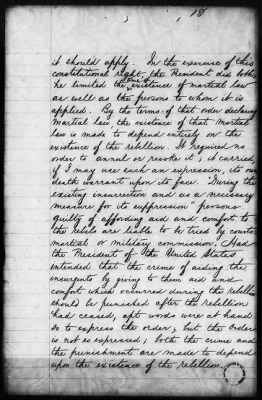 18
it should apply. In the exercise of this
constitutional right, the President did both,
he limited the time & existence of martial law
as well as the persons to whom it is
applied. By the terms of that order declaring
martial law the existence of that martial
law is made to depend entirely on the
existence of the rebellion. It required no
order to annul or revoke it; it carried,
if I may use such an expression, its own
death warrant upon its face. "During the
existing insurrection and as a necessary
measure for its suppression" persons
guilty of affording aid and comfort to
the Rebels are liable to be tried by courts
martial or military commission. Had
the President of the United States
intended that the crime of aiding the
insurgents by giving to them aid and
comfort which occurred during the rebellion
should be punished after the rebellion
had ceased, apt words were at hand
so to express the order; but the order
is not so expressed; both the crime and
the punishment are made to depend
upon the existence of the rebellion.